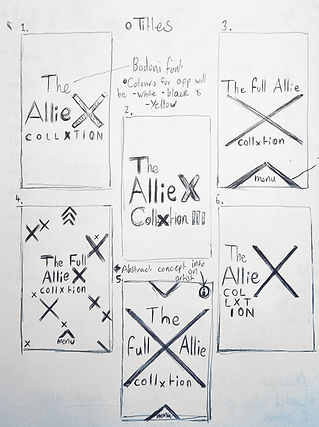 Titles
1.
The
Allie X
COLLXTION
Bodoni font
Colours for app will
be - white - black &
- Yellow
2.
The
Allie X
Collxtion III
3.
The Full Allie
X
collxtion
menu
4.
The Full
Allie X
collxtion
menu
Abstract concept info
on
artist
5.
The
Full X Allie
collxtion
menu
6.
The
Allie X
COL
LXT
ION